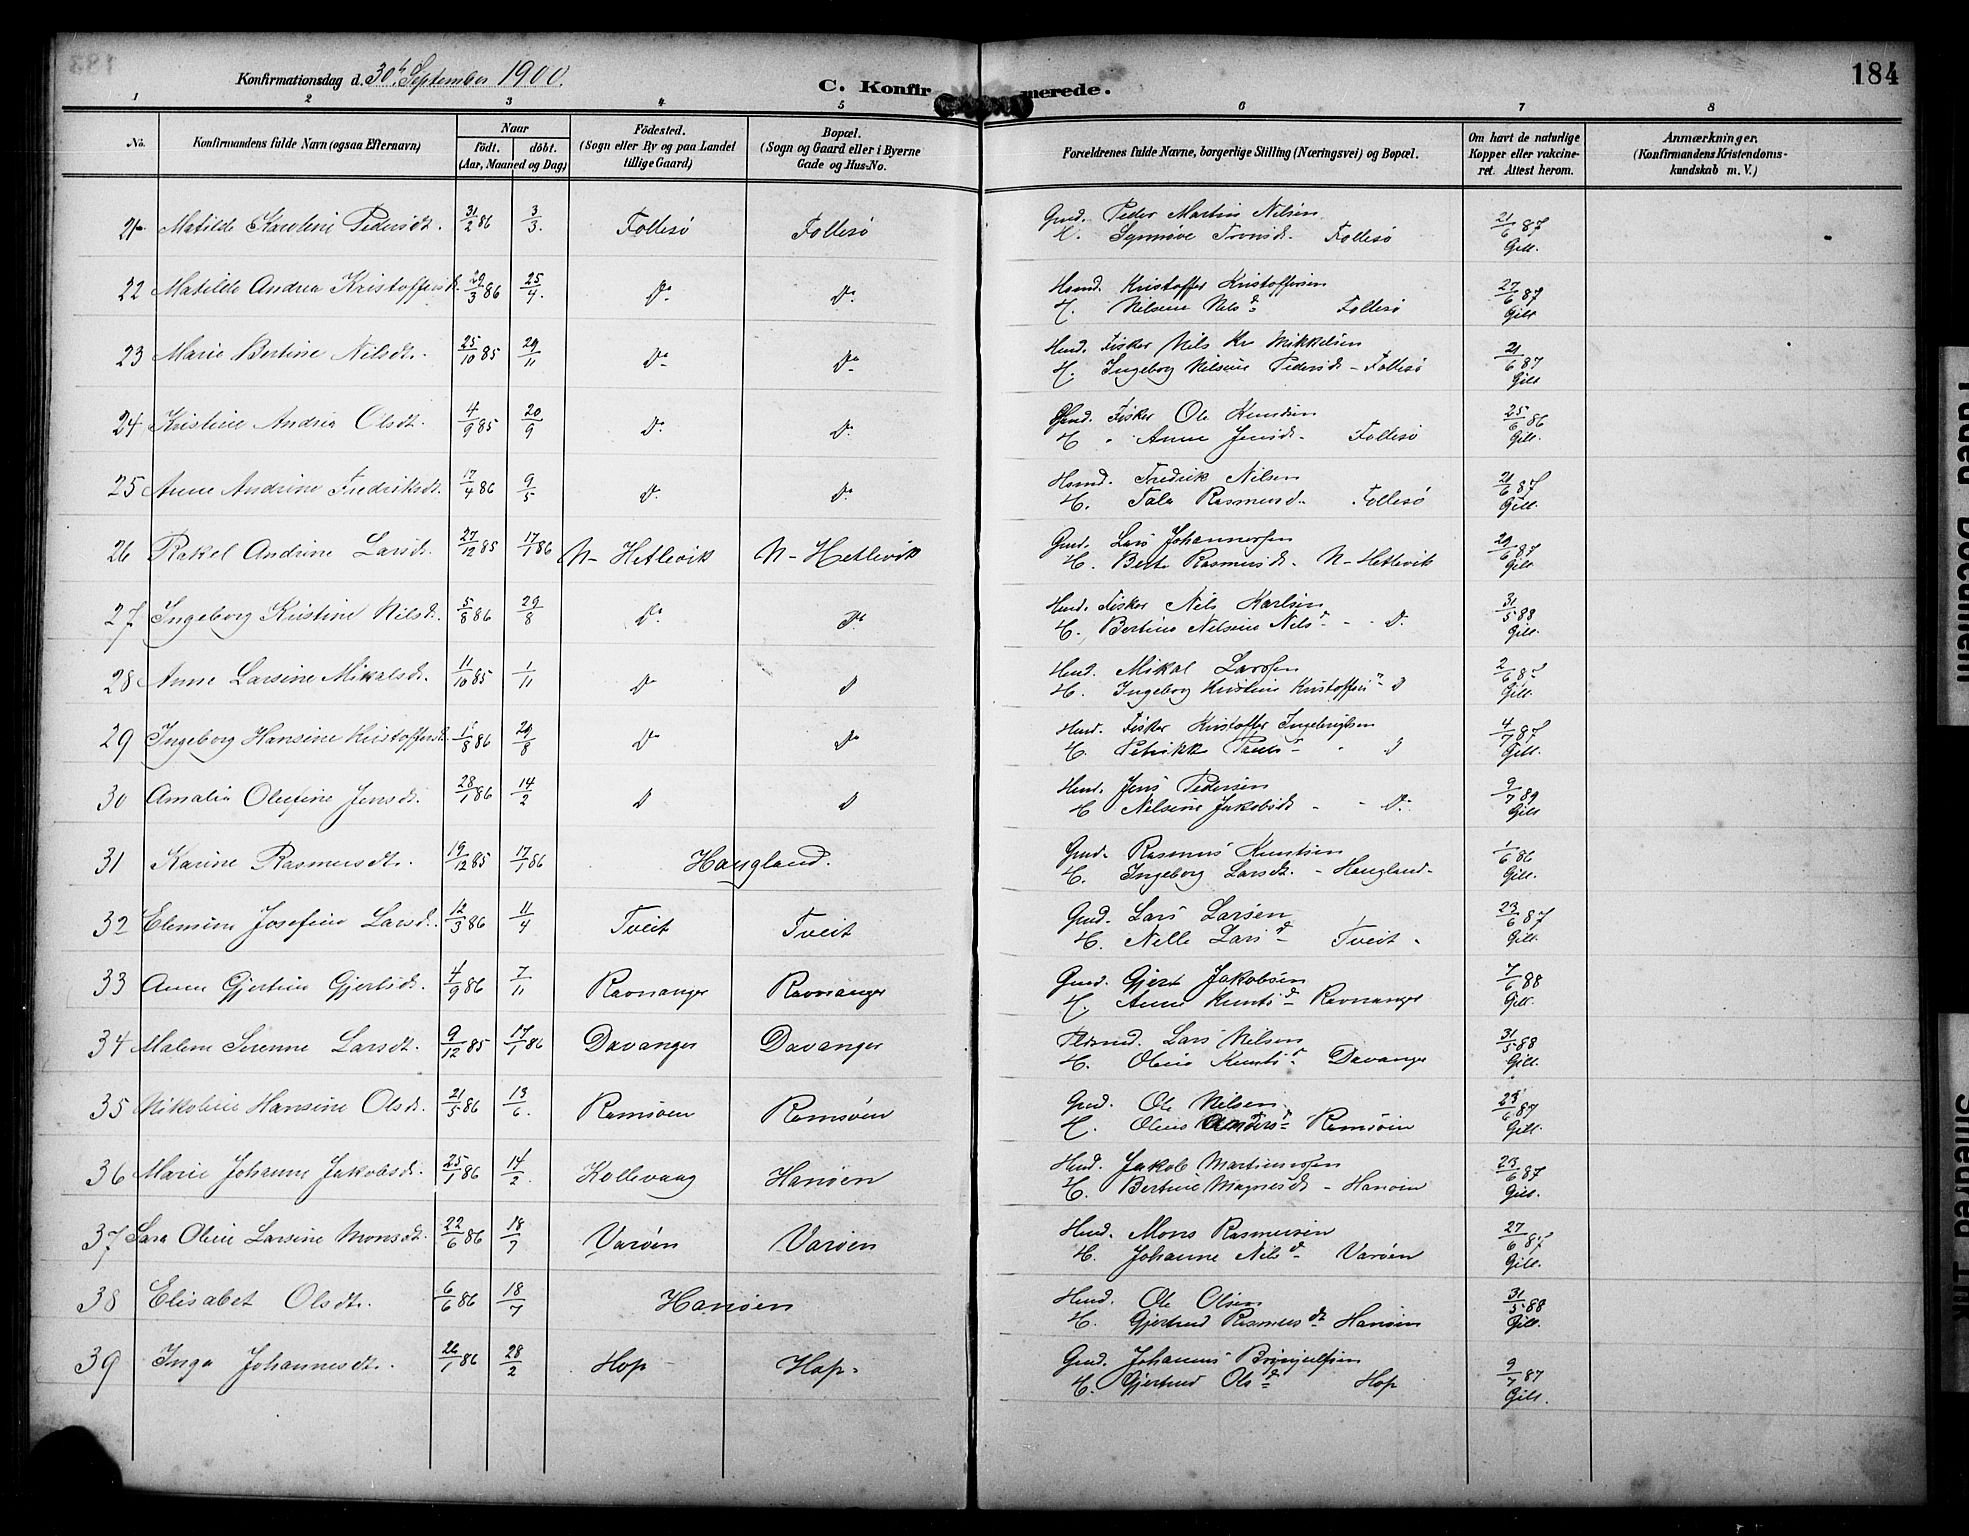 184
Konfirmationsdag d. 30te September 1900.
C. Konfirmerede.
1 2 3 4 5 6 7 8
No. Konfirmandens fulde Navn (ogsaa Efternavn) Naar födt. döbt. (Aar, Maaned og Dag) Födested. (Sogn eller By og paa Landet tillige Gaard) Bopæl. (Sogn og Gaard eller i Byerne Gade og Hus-No. Forældrenes fulde Navne, borgerlige Stilling (Næringsvei) og Bopæl. Om havt de naturlige Kopper eller vakcineret. Attest herom. Anmærkninger, (Konfirmandens Kristendomskundskab m. V.)
21 Matilde Karoline Pedersdt. 31/2 86 3/3. Follesö Follesö Gmd. Peder Martin Nilsen 21/6 87
H. Synnöve Tronsd. Follesö Gill.
22 Matilde Andrea Kristoffersd. 29/3 86 25/4. Do Do Hsmd. Kristoffer Kristoffersen 27/6 87
H. Nilsine Nilsd Follesö Gill
23 Marie Bertine Nilsdt. 25/10 85 29/11 Do Do Hmd. Fisker Nils Kr Mikkelsen 21/6 87
H. Ingeborg Nilsine Pedersd - Follesö Gill
24 Kristine Andrea Olsdt. 4/9 85 20/9 Do Do Gmd. Fisker Ole Knudsen 25/6 86
H. Anne Jensd. Follesö Gill.
25 Anne Andrine Fredriksdt. 17/4 86 9/5 Do Do Hsmd. Fredrik Nilsen 21/6 87
H. Tala Rasmusd. Follesö Gill.
26 Rakel Andrine Larsd. 27/12 85 17/1 86 N- Hetlevik N- Hetlevik Gmd. Lars Johannessen 29/6 87
H. Berte Rasmusd. N- Hetlevik Gill
27 Ingeborg Kristine Nilsd. 5/8 86 29/8 Do Do Hmd. Fisker Nils Karlsen 31/5 88
H. Bertine Nilsine Nilsd - - D. Gill.
28 Anne Larsine Mikalsdt. 11/10 85 1/11 Do D Hmd. Mikal Larssen 2/6 87
H. Ingeborg Kristine Kristoffersd - D Gill.
29 Ingeborg Hansine Kristoffersd. 1/8 86 29/8 Do Do Hmd. Fisker Kristoffer Ingebrigtsen 4/7 87
H. Petrikke Pauls - D Gill.
30 Amalia Olufine Jensdt. 28/1 86 14/2 D D Hmd. Jens Pedersen 9/7 89
H Nilsine Jakobsd - - D. Gill
31 Karine Rasmusdt. 19/12 85 17/1 86 Haugland. Gmd. Rasmus Knutsen 1/6 86
H. Ingeborg Larsdt. - Haugland - Gill.
32 Elemine Josefine Larsd. 12/3 86 11/4 Tveit Tveit Gmd. Lars Larsen 23/6 87
H. Nille Larsd Tveit - Gill.
33 Anne Gjertine Gjertsdt. 4/9 86 7/11 Ravnanger Ravnanger Gmd. Gjert Jakobsen 7/6 88
H. Anne Knuts d Ravnanger Gill.
34 Malene Serenne Larsdt. 9/12 85 17/1 86 Davanger Davanger Lars Nilsen 31/5 88
H. Oline Knuts d Davanger Gill.
35 Nikoline Hansine Olsd. 21/5 86 13/6. Ramsöen Ramsöen Gmd. Ole Nilsen 23/6 87
H. Oline Andersd Ramsöen Gill.
36 Marie Johanne Jakobsdt. 25/1 86 14/2 Kollevaag Hanöen Hmd. Jakob Martinussen 23/6 87
H. Bertine Magnesdt - Hanöen Gill.
37 Sara Oline Larsine Monsdt. 22/6 86 18/7 Varöen Varöen Hmd. Mons Rasmussen 27/6 87
H. Johanne Nils d. Varöen Gill.
38 Elisabet Olsdt. 6/6 86 18/7 Hanöen Hmd. Ole Olsen 31/5 88
H. Gjertrud Rasmus dt Hanöen Gill.
39 Inga Johannesdt. 26/1 86 28/2 Hop Hop. Gmd. Johannes Brynjulfsen 9/7 87
H. Gjertrud Ols d Hop Gill.